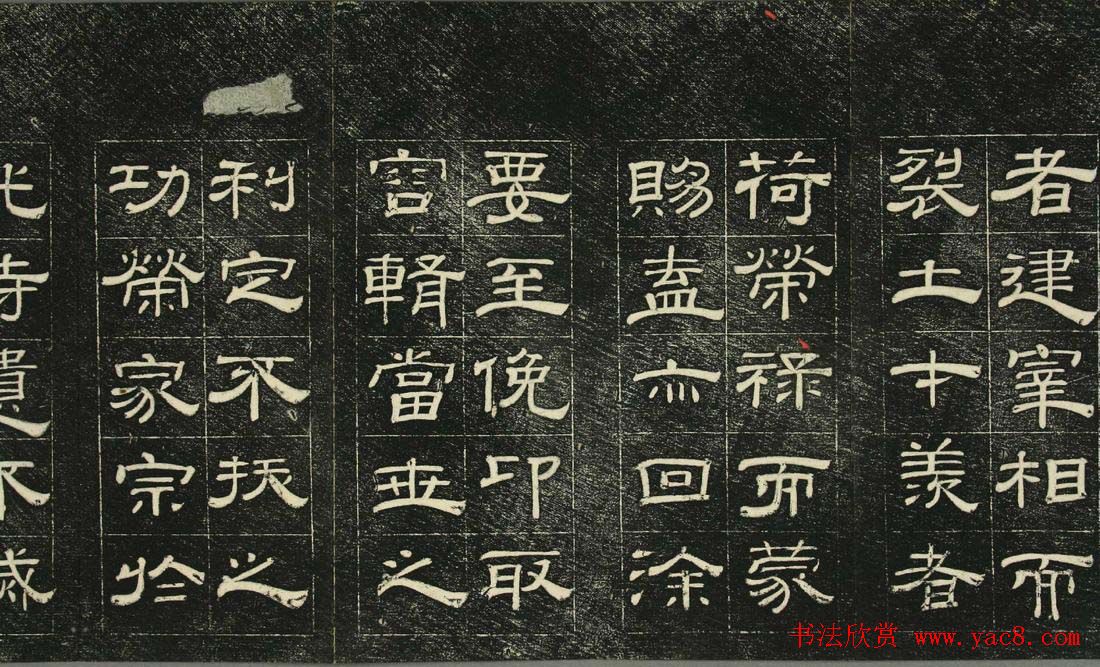 者建宰相而
裂土才羡者
荷榮禄而蒙
賜盍亦回涂
要至俛印取
容輯當世之
利定不扶之
功榮家宗於
书法欣赏 www.yac8.com